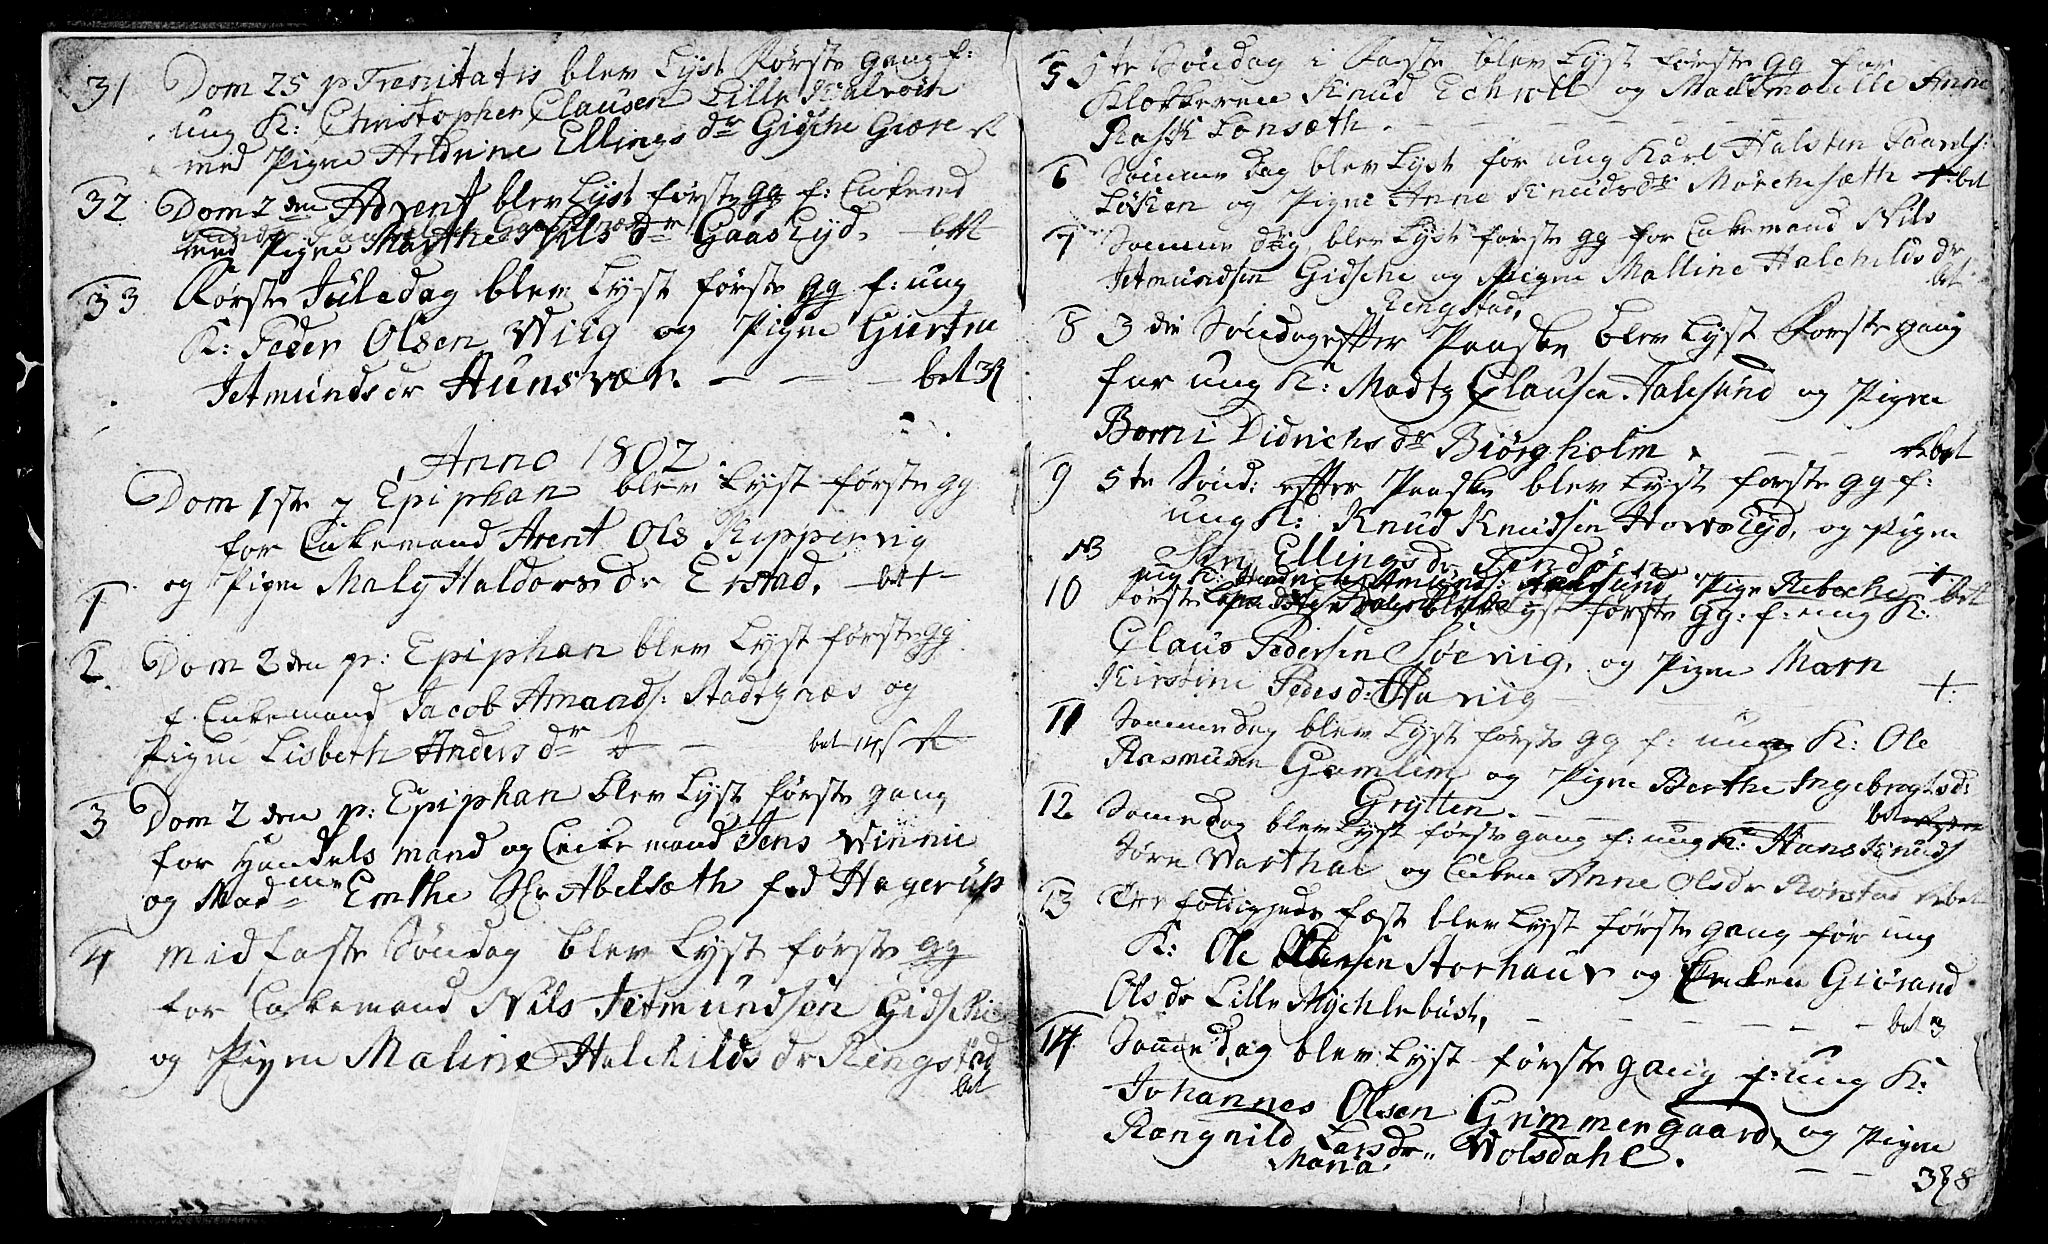 31 Dom 25 p Trenitatis blev Lyst Første gang f:
ung K: Christopher Clausen Lille Kalvøen
med Pigen Aldrine Ellings dr Gidsche Giære
32 Dom 2 den Advent blev Lyst første gg f: Enkemd
med Pigen Marthe Nils dr Gaaseyd. - bet
33 Første Juledag blev Lyst første gg f: ung
K: Peder Olsen Wiig og Pigen Giertru
Jetmundsdr Hunsvær. — — — bet 3
Anno 1802
Dom 1ste p Epiphan blev Lyst første gg
for Enkemand Arent Ols Kippervig
1 og Pigen Maly Haldorsdr Erstad, - bet +
2 Dom 2 den p: Epiphan blev Lyst første gg
f. Enkemand Jacob Amands: Stadsnæs og
Pigen Lisbeth Anders dr — bet
3 Dom 2 den p: Epiphan blev Lyst første gang
for Handels mand og Enke mand Jens Winnie
og Mad me Emthe Abelsæth fød Hagerup
4 Midfaste Søndag blev Lyst første gg
for Enkemand Nils Jetmundsen Gidschi
og Pigen Maline Halchilds dr Ringstad
bet
5 1te Søndag i Faste blev Lyst første gg for
Klokkeren Knud Echroll og Madmoiselle Anne
Rask Lonsæth.
6 Samme dag blev Lyst for ung Karl Halsten Paauls:
Løken og Pigen Anne Knudsdr Mørchesæth + bet
7 Samme dag blev Lyst første gg for Enkemand Nils
Jetmundsen Gidsche og Pigen Malline Halchildsdr
Ringstad, bet
8 3 die Søndag effter Paaske blev Lyst Første gang
for ung K: Madtz Clausen Aalesund og Pigen
Berni Didrichs dr Biørgholm. — — bet
9 5te Sønd: effter Paaske blev Lyst første gg f:
ung K: Knud Knudsen Hovseyd, og Pigen
NB Ellings dr
ung K: Amunds: Aalesund Pigen Rebeche + bet
10 Første Lyst første gg: f: ung K:
Claus Pedersen Søevig, og Pigen Marn
Kirstine Pedersd: +
11 Samme dag blev Lyst første gg f: ung K: Ole
Rasmusen Gamlim og Pigen Berthe Ingebrogtsd:
Grytten. — — — — bet
12 Same dag blev Lyst første gang f: ung K: Hans Knuds
Søre Warthal og Enken Anne Olsdr Rørstad bet
13 blev Lyst første gang før ung
K: Ole Storhaur og Enken Giørand
Olsdr Lille Mychlebust, — — — — — bet 3
14 Same dag blev Lyst første gang f: ung K:
Johannes Olsen Grimmergaard, og Pigen
Rangnild Larsdr Wolsdahl.
Maria — — 38